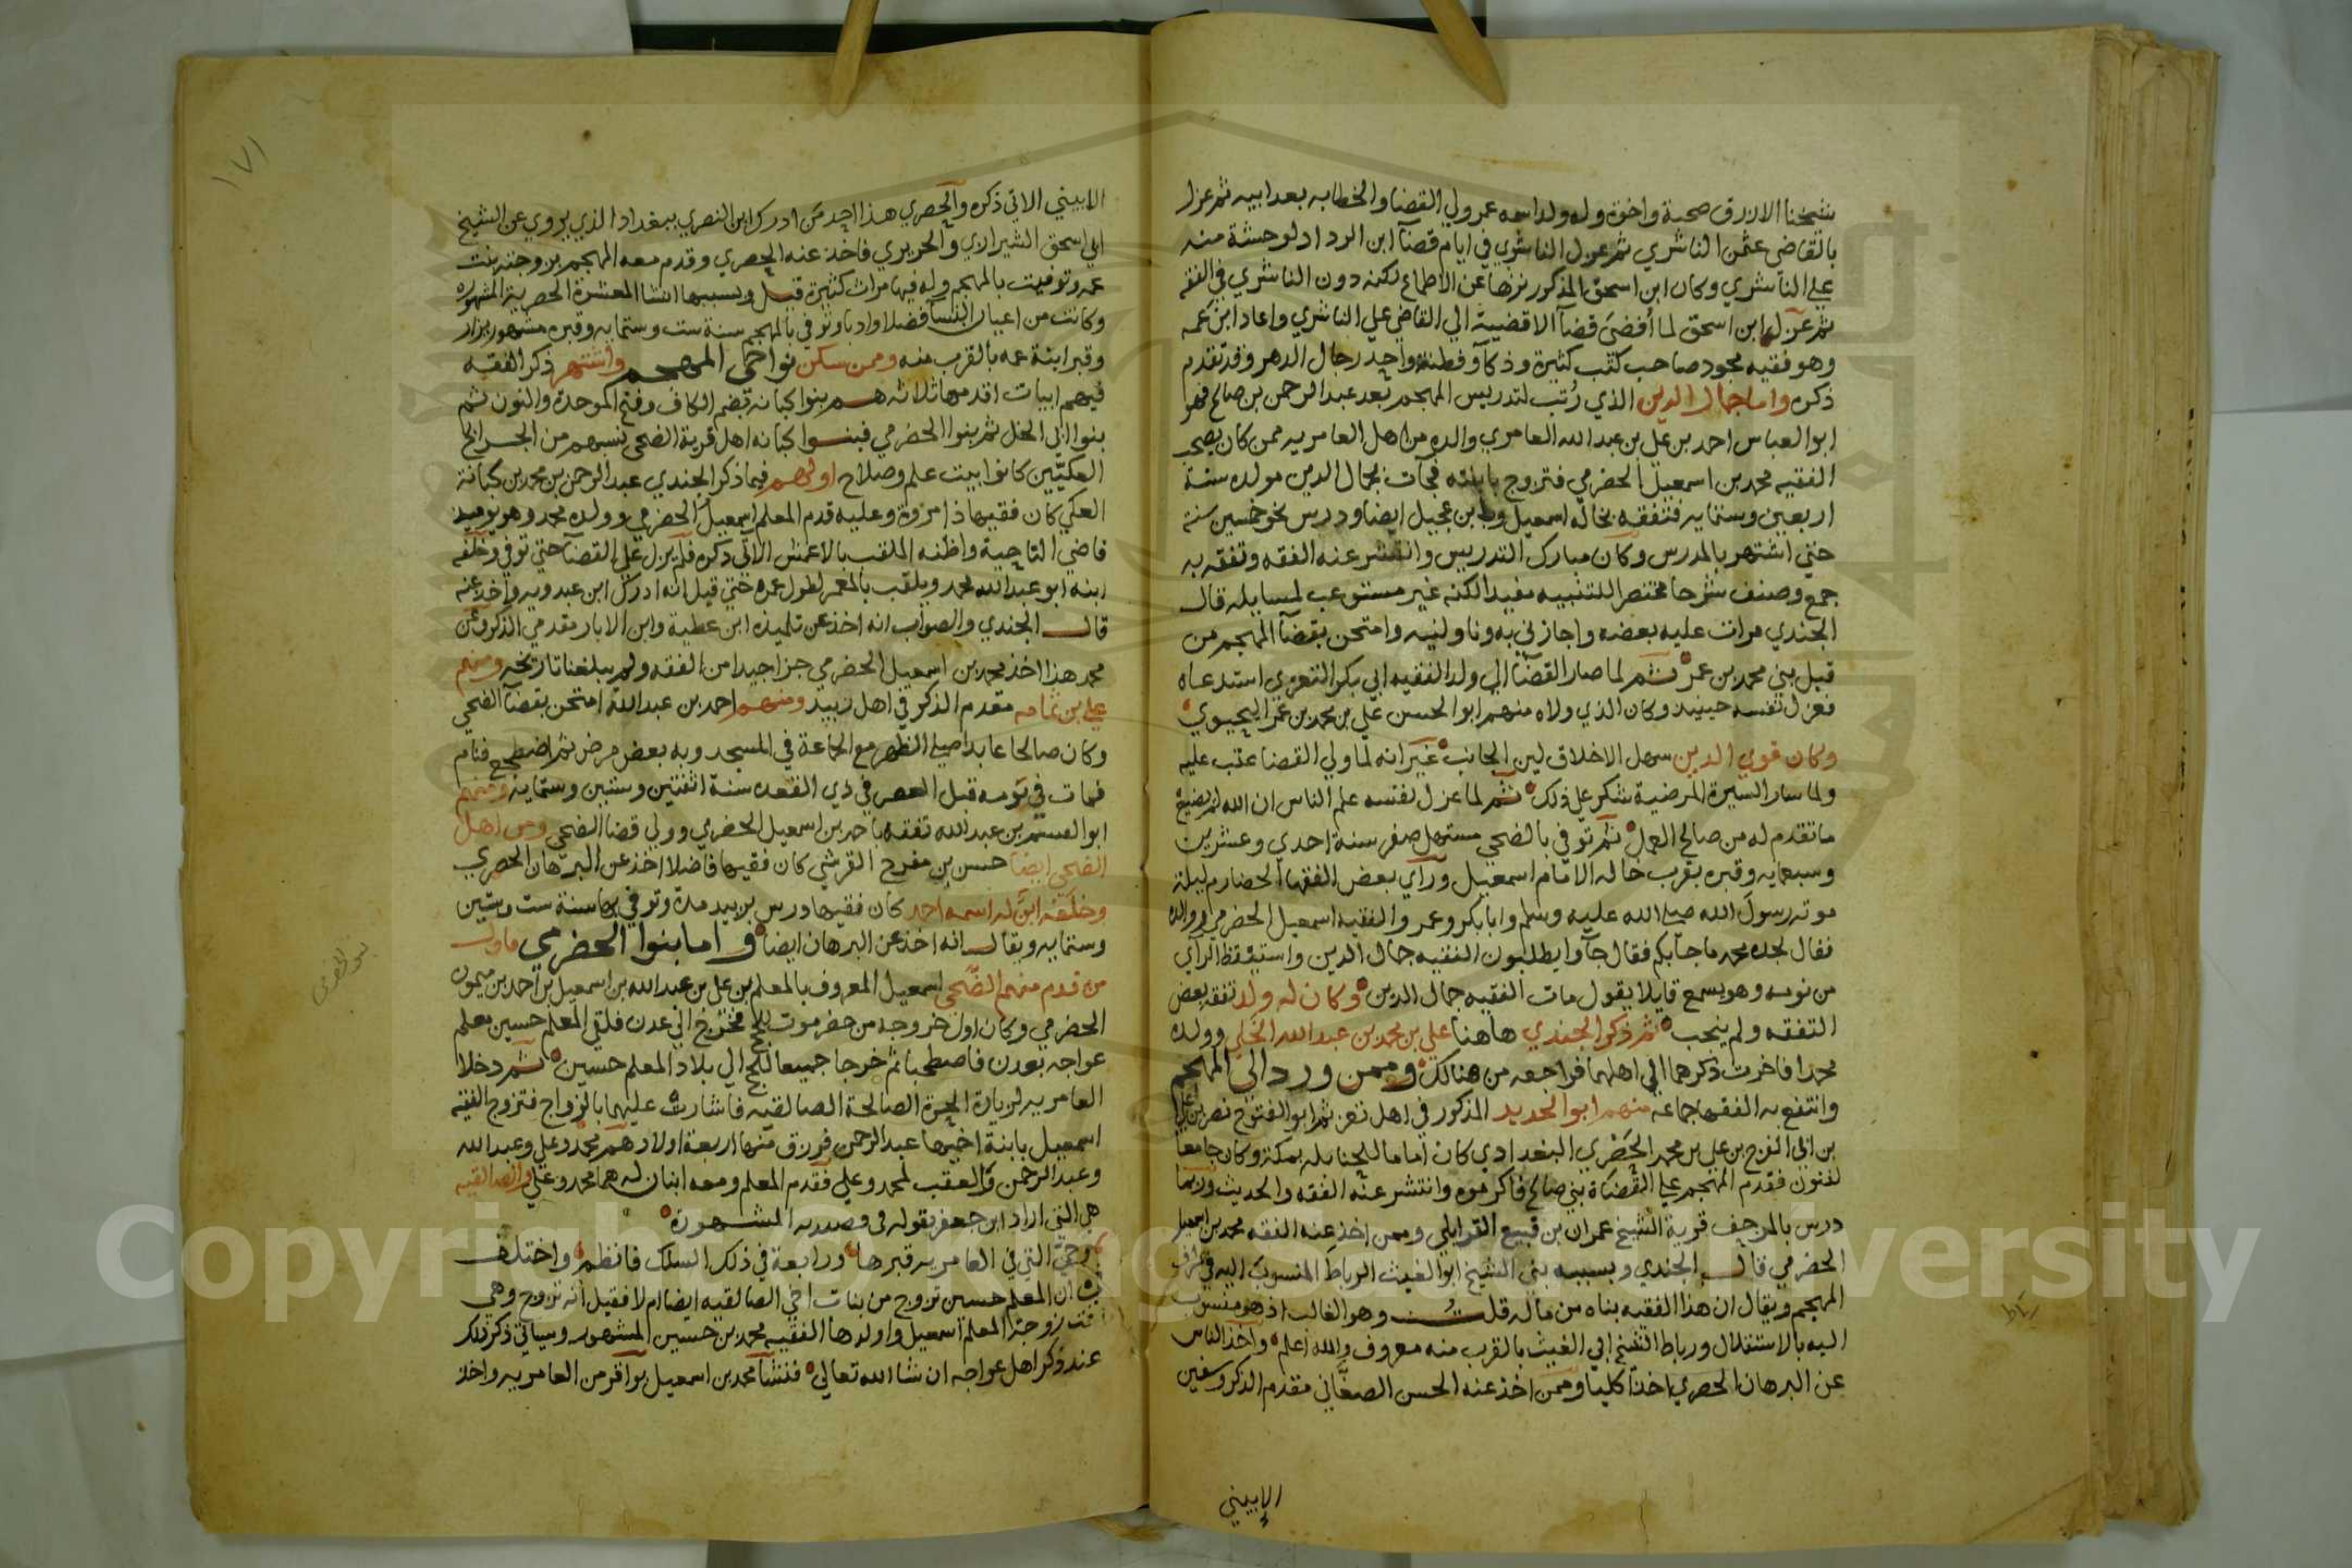 شيخنا الازرق صحبة واخوة وله ولد اسمه عمر ولي القضا والخطابه بعد ابيه ثم عزل
بالقاضي عثمن الناشري ثم عزل الناشري في ايام قضآ ابن الرداد لوحشة منه
علي الناشري وكان ابن اسحق المذكور نزها عن الاطماع لكنه دون الناشري في الفقه
ثم عزل ابن اسحق لما أفضى قضآ الاقضية الي القاضي علي الناشري واعاد ابن عمه
وهو فقيه مجود صاحب كتب كثيرة وذكآ وفطنة واحد رجال الدهر وقد تقدم
ذكره واما جمال الدين الذي رُتب لتدريس المهجم بعد عبد الرحمن بن صالح فهو
ابو العباس احمد بن علي بن عبد الله العامري والده من اهل العامريه ممن كان يصحب
الفقيه محمد بن اسمعيل الحضرمي فتزوج بابنته فجآت بجمال الدين مولده سنة
اربعين وستمايه فتفقه بخاله اسمعيل وبابن عجيل ايضا ودرس نحو خمسين سنة
حتي اشتهر بالمدرس وكان مبارك التدريس وانتشر عنه الفقه وتفقه به
جمع وصنف شرحا مختصرا للتنبيه مفيدا لكنه غير مستوعب لمسايله قال
الجندي مرات عليه بعضه واجازني به وناولنيه وامتحن بقضآ المهجم من
قبل بني محمد بن عمر ثم لما صار القضآ الي ولد الفقيه ابي بكر التعزي استدعاه
فعزل نفسه حينيذ وكان الذي ولاه منهم ابو الحسن علي بن محمد بن عمر اليحيوي
وكان قوي الدين سهل الاخلاق لين الجانب غير انه لما ولي القضا عتب عليه
ولما سار السيرة المرضية شكر علي ذلك ثم لما عزل نفسه علم الناس ان الله لم يضيع
ما تقدم له من صالح العمل ثم توفي بالضحي مستهل صفر سنة احدي وعشرين
وسبعمايه وقبره بقرب خاله الامام اسمعيل ورآي بعض الفقها الحضارم ليلة
موته رسول الله صلي الله عليه وسلم وابا بكر وعمر والفقيه اسمعيل الحضرمي ووالده
فقال لجده محمد ما جآ بكم فقال جآوا يطلبون الفقيه جمال الدين واستيقظ الرآي
من نومه وهو يسمع قايلا يقول مات الفقيه جمال الدين وكان له ولد تفقه بعض
التفقه ولم ينجب ثم ذكر الجندي هاهنا علي بن محمد بن عبد الله الخلي وولده
محمدا فاخرت ذكرهما الي اهلهما فراجعه من هنالك وممن ورد الي المهجم
وانتفع به الفقها جماعه منهم ابو الحديد المذكور في اهل تعز ثم ابو الفتوح نصر بن علي
بن ابي الفرج بن علي بن محمد الحَصْري البغدادي كان اماما للحنابله بمكة وكان جامعا
لفنون فقدم المهجم علي القضاة بني صالح فاكرموه وانتشر عنه الفقه والحديث وربما
درس بالمرجف قرية الشيخ عمران بن قبيع القرابلي وممن اخذ عنه الفقه محمد بن اسمعيل
الحضرمي قال الجندي وبسببه بني الشيخ ابو الغيث الرباط المنسوب اليه في اطراف
المهجم ويقال ان هذا الفقيه بناه من ماله قلت وهو الغالب اذ هو منسوب
اليه بالاستقلال ورباط الشيخ ابي الغيث بالقرب منه معروف والله اعلم واخذ الناس
عن البرهان الحصري اخذا كليا وممن اخذ عنه الحسن الصغاني مقدم الذكر وسفين
الابيني
رباط
١٧١
الابيني الاتي ذكره والحصري هذا احد من ادرك ابن النصري ببغداد الذي يروي عن الشيخ
ابي اسحق الشيرازي والحريري فاخذ عنه الحصري وقدم معه المهجم بزوجته بنت
عمه وتوفيت بالمهجم وله فيها مراث كثيرة قيل وبسببها انشا المعشرة الحصرية المشهوره
وكانت من اعيان النسآ فضلا وادبا وتوفي بالمهجم سنة ست وستمايه وقبره مشهور يزار
وقبر ابنة عمه بالقرب منه وممن سكن نواحي المهجم واشتهر ذكر الفقه
فيهم ابيات اقدمها ثلاثه هم بنوا كبانه بضم الكاف وفتح الموحدة والنون ثم
بنوا ابي الخل ثم بنوا الحضرمي فبنوا كبانه اهل قرية الضحي نسبهم من الجرابح
العكيّين كانوا بيت علم وصلاح اولهم فيما ذكر الجندي عبد الرحمن بن محمد بن كبانة
العكي كان فقيها ذا مروة وعليه قدم المعلم اسمعيل الحضرمي وولده محمد وهو يوميذ
قاضي الناحية واظنه الملقب بالاعمش الاتي ذكره فلم يزل علي القضآ حتي توفي وخلفه
ابنه ابو عبد الله محمد ويلقب بالمعمر لطول عمره حتي قيل انه ادرك ابن عبدويه واخذ عنه
قال الجندي والصواب انه اخذ عن تلميذه ابن عطية وابن الابار مقدمي الذكر وعن
محمد هذا اخذ محمد بن اسمعيل الحضرمي جزا جيدا من الفقه ولم يبلغنا تاريخه ومنهم
علي بن ثمامه مقدم الذكر في اهل زبيد ومنهم احمد بن عبد الله امتحن بقضآ الضحي
وكان صالحا عابدا صلي الظهر مع الجماعة في المسجد وبه بعض مرض ثم اضطجع فنام
فمات في نومه قبل العصر في ذي القعده سنة اثنتين وستين وستمايه ومنهم
ابو القسم بن عبد الله تفقه باحمد بن اسمعيل الحضرمي وولي قضا الضحي ومن اهل
الضحي ايضا حسن بن مفرح القرشي كان فقيها فاضلا اخذ عن البرهان الحصري
وخلفه ابن له اسمه احمد كان فقيها ودرس بزبيد مدة وتوفي بها سنة ست وستين
وستمايه ويقال انه اخذ عن البرهان ايضا واما بنوا الحضرمي فاول
من قدم منهم الضَّحي اسمعيل المعروف بالمعلم بن علي بن عبد الله بن اسمعيل بن احمد بن ميمون
الحضرمي وكان اول خروجه من حضرموت للحج فخرج الي عدن فلقي المعلم حسين معلم
عواجه بعدن فاصطحبا ثم خرجا جميعا للحج الي بلاد المعلم حسين ثم دخلا
العامريه لزيارة الحرة الصالحة الصالقيه فاشارت عليهما بالزواج فتزوج الفقيه
اسمعيل بابنة اخيها عبد الرحمن فرزق منها اربعة اولاد هم محمد وعلي وعبد الله
وعبد الرحمن والعقب لمحمد وعلي فقدم المعلم ومعه ابنان له هما محمد وعلي والصالقيه
هي التي اراد ابن جعفر بقوله في قصيدته المشهورة
وحيّ التي في العامريه قبرها ورابعة في ذلك السلك فانظم واختلف
ان المعلم حسين تزوج من بنات اخي الصالقيه ايضا ام لا فقيل انه تزوج وهي
اخت زوجة المعلم اسمعيل واولدها الفقيه محمد بن حسين المشهور وسياتي ذكر ذلك
عند ذكر اهل عواجه ان شا الله تعالي فنشآ محمد بن اسمعيل بواقر من العامريه واخذ
بنو الحضرمي
Copyright © King Saud University